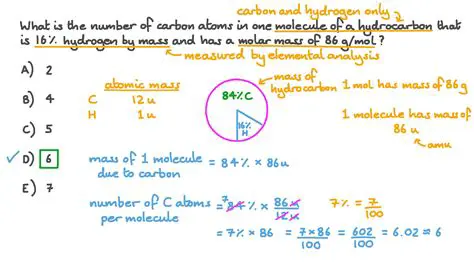 carbon and hydrogen only
What is the number of carbon atoms in one molecule of a hydrocarbon that
is 16% hydrogen by mass and has a molar mass of 86 g/mol?
measured by elemental analysis
A) 2
B) 4
C) 5
✓ D) 6
E) 7
atomic mass
C 12 u
H 1 u
84% C
16% H
mass of hydrocarbon
1 mol has mass of 86g
1 molecule has mass of
86 u
amu
mass of 1 molecule
due to carbon = 84% × 86u
number of C atoms
per molecule = 7 84% × 86u/12u
7% = 7/100
= 7% × 86 = 7×86/100 = 602/100 = 6.02 ≈ 6